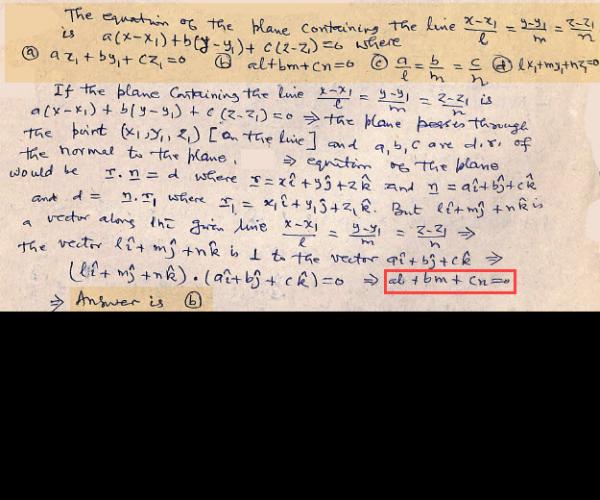 The equation of the plane containing the line x-x₁/l = y-y₁/m = z-z₁/n
is a(x-x₁)+b(y-y₁)+c(z-z₁)=0 where
ⓐ az₁+by₁+cz₁=0 ⓑ al+bm+cn=0 ⓒ a/l = b/m = c/n ⓓ lx₁+my₁+nz₁=0
If the plane containing the line x-x₁/l = y-y₁/m = z-z₁/n is
a(x-x₁)+b(y-y₁)+c(z-z₁)=0 ⇒ the plane passes through
the point (x₁,y₁,z₁) [on the line] and a,b,c are d.r. of
the normal to the plane. ⇒ equation of the plane
would be r.n=d where r=xî+yĵ+zk̂ and n=aî+bĵ+ck̂
and d= n.r₁ where r₁=x₁î+y₁ĵ+z₁k̂. But lî+mĵ+nk̂ is
a vector along the given line x-x₁/l = y-y₁/m = z-z₁/n ⇒
the vector lî+mĵ+nk̂ is ⊥ to the vector aî+bĵ+ck̂ ⇒
(lî+mĵ+nk̂)·(aî+bĵ+ck̂)=0 ⇒ al+bm+cn=0
⇒ Answer is ⓑ